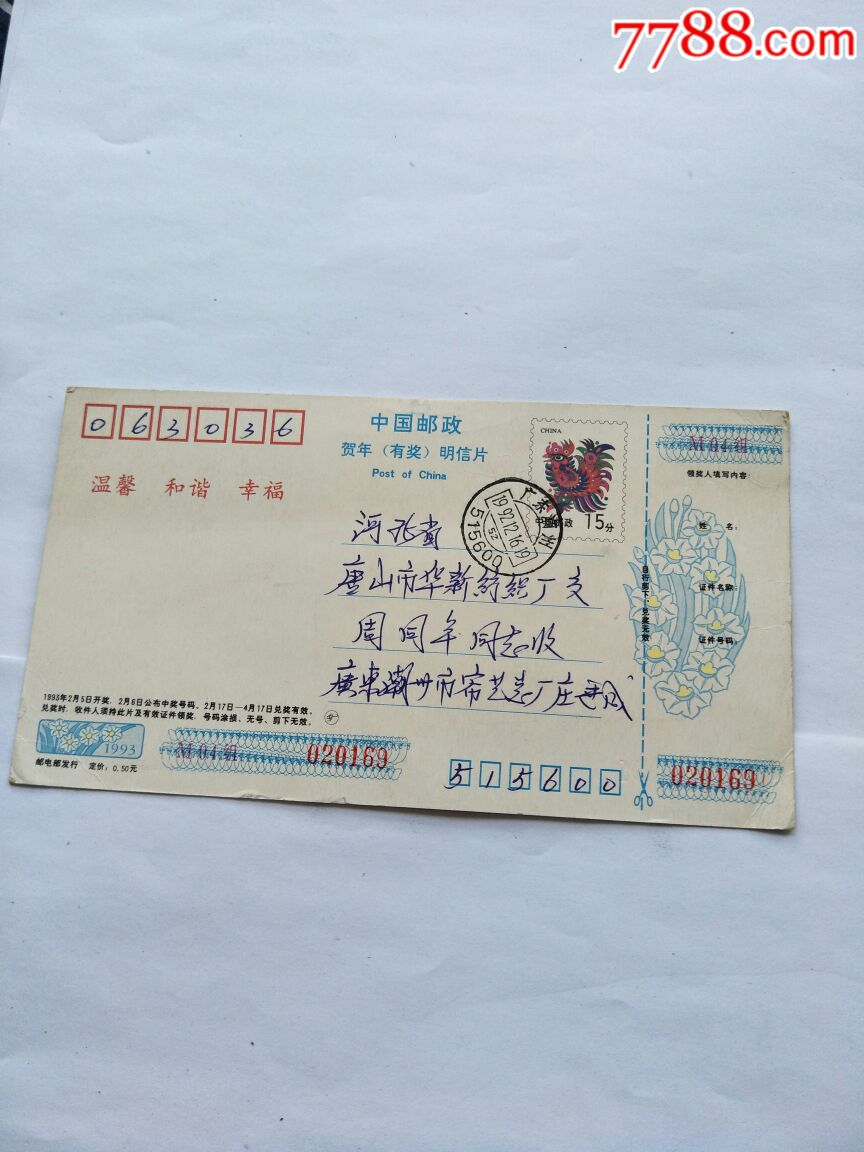 7788.com
063036
中国邮政
贺年（有奖）明信片
Post of China
温馨 和谐 幸福
CHINA
中国邮政 15分
广东 州
1992.12.16.19
52
515600
河北省
唐山市华新纺织厂支
周同年同志收
廣東潮州市帘艺志厂庄
1993年2月5日开奖，2月6日公布中奖号码，2月17日—4月17日兑奖有效。
兑奖时，收件人须持此片及有效证件领奖，号码涂损、无号、剪下无效。
1993
邮电部发行 定价：0.50元
M 04组
020169
515600
自行剪下，兑奖无效
M 04组
领奖人填写内容：
姓 名：
证件名称：
证件号码：
020169